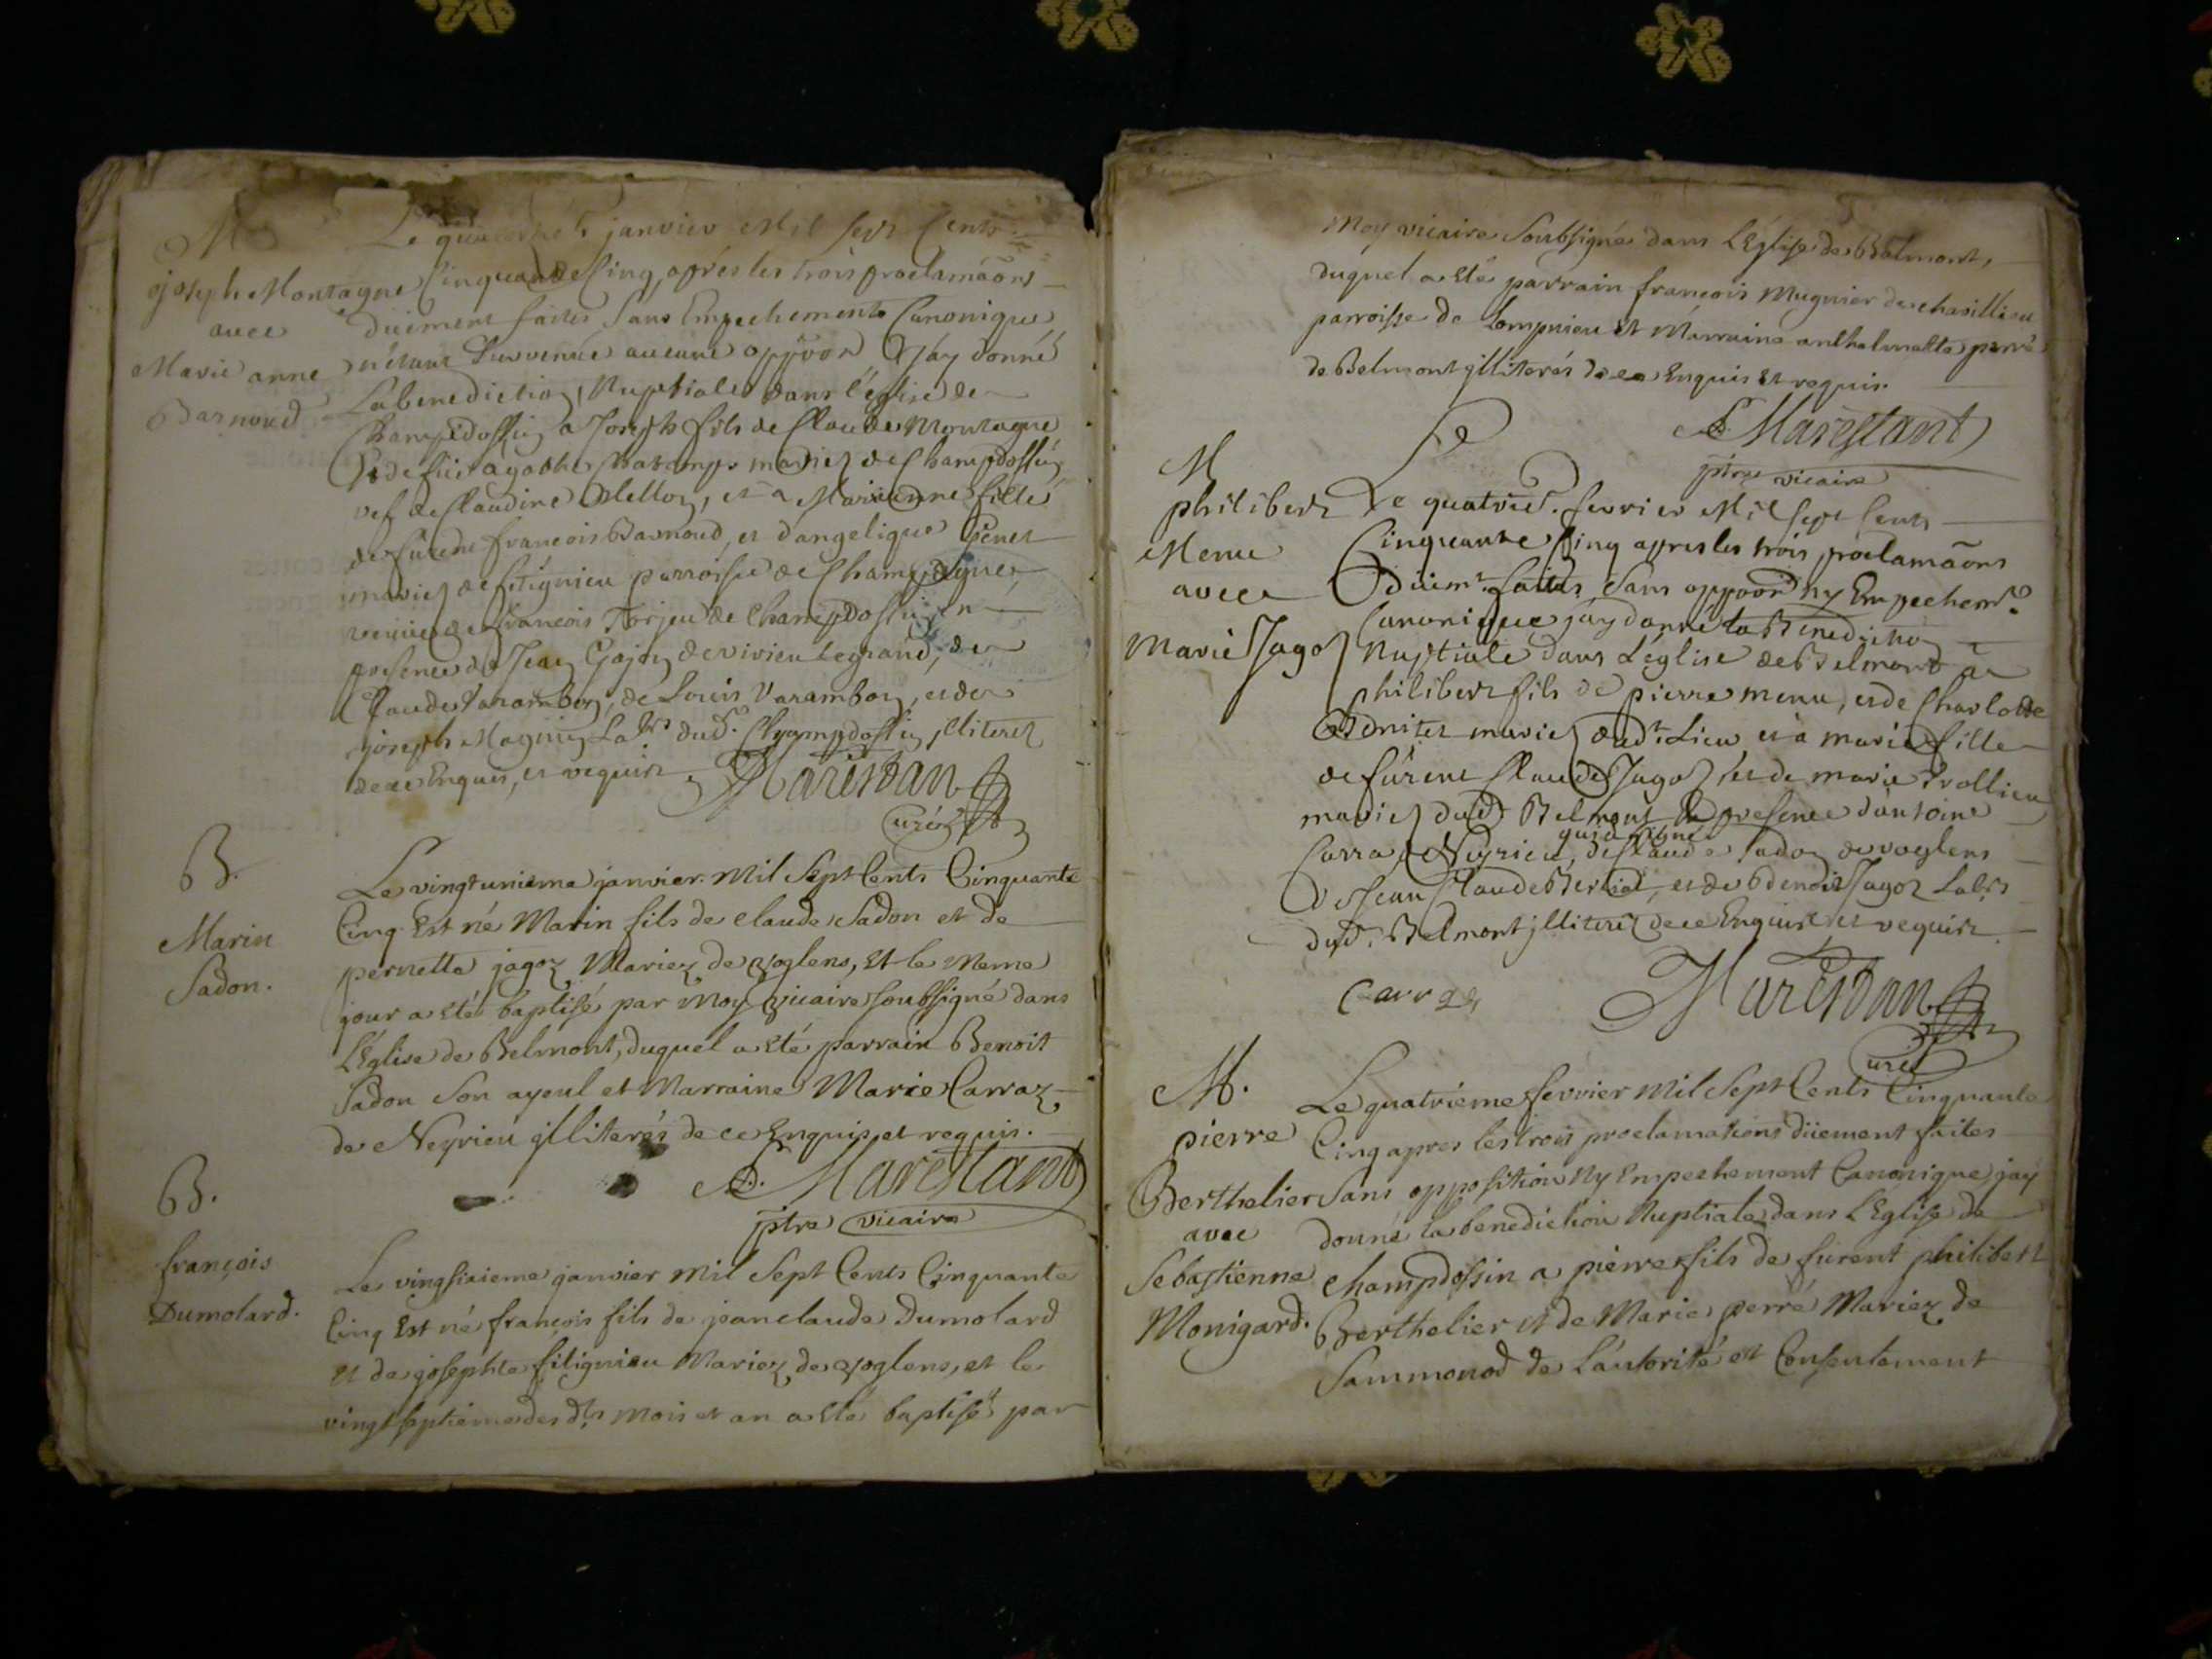 M
joseph Montagne
avec
Marie anne
Barnoud
Le janvier Mil sept Cents
Cinquante Cinq, apres les trois proclamãons
düement faites Sans Empechements Canonique
n'étant Survenüe aucune oppõon J'ay donné
La benediction Nuptiale dans l'église de
Champdossin a Joseph fils de Claude Montagne
& de füe agathe mariez de Champdossin
vef de Claudine Melloz, et a Marianne fille
de fürent francois Barnoud, et d'angelique Penet
mariez de fitignieu parroisse de Champagne,
veuve de francois de Champdossin en
presence de Jean Gojon de virieu Le grand, de
Claude Varambon, de Louis Varambon, et de
joseph Magnin Labrs dud. Champdossin jlliterez
de ce Enquis, et requis. Marestan
Curé
B.
Marin
Sadon.
Le vingtunieme janvier Mil Sept Cents Cinquante
Cinq Est né Marin fils de Claude Sadon et de
pernette jagoz Mariez de voglens, Et le Meme
jour a eté baptisé par Moy vicaire soubsigné dans
L'Eglise de Belmont, duquel a eté parrain Benoit
Sadon Son ayeul et Marraine Marie Carraz
de Neyrieu jlliterés de ce Enquis et requis.
Marestant
ptre vicaire
B.
françois
Dumolard.
Le vingsixieme janvier Mil Sept Cents Cinquante
Cinq Est né françois fils de jean claude Dumolard
et de josephte fitignieu Mariez de voglens, et le
vingt septieme des dts mois et an a eté baptisé par
Moy vicaire Soubsigné dans L'Eglise de Belmont,
duquel a eté parrain françois Mugnier de chavillieu
parroisse de Lompnieu Et Marraine anthelmette perré
de Belmont jlliterés de ce Enquis Et requis.
Marestant
ptre vicaire
M
philibert
Menu
avec
Marie Jagoz
Le quatrie. fevrier Mil Sept Cents
Cinquante Cinq apres les trois proclamãons
düemt. faites, Sans oppõon ny Empechemt.
Canonique j'ay donné la Benediction
Nuptiale dans L'église de Belmont à
philibert fils de pierre menu, et de Charlotte
mariez dudt. Lieu et à marie fille
de fürent Claude Jagoz et de marie trollieu
mariez dud. Belmont En presence d'antoine
Carra de Neyrieu, qui a signé de Claude Sadon de voglens
de Jean Claude Bertet, et de Benoit Jagoz Labrs
dud. Belmont jlliterez de ce Enquis et requis.
Carraz
Marestan
curé
M.
pierre
Berthelier
avec
Sebastienne
Monigard.
Le quatrieme fevrier Mil Sept Cents Cinquante
Cinq apres les trois proclamations düement faites
Sans opposition Ny Empechement Canonique jay
donné la benediction Nuptiale dans L'Eglise de
Champdossin a pierre fils de furent philibert
Berthelier et de Marie perré Mariez de
Sammonod de L'autorité et Consentement